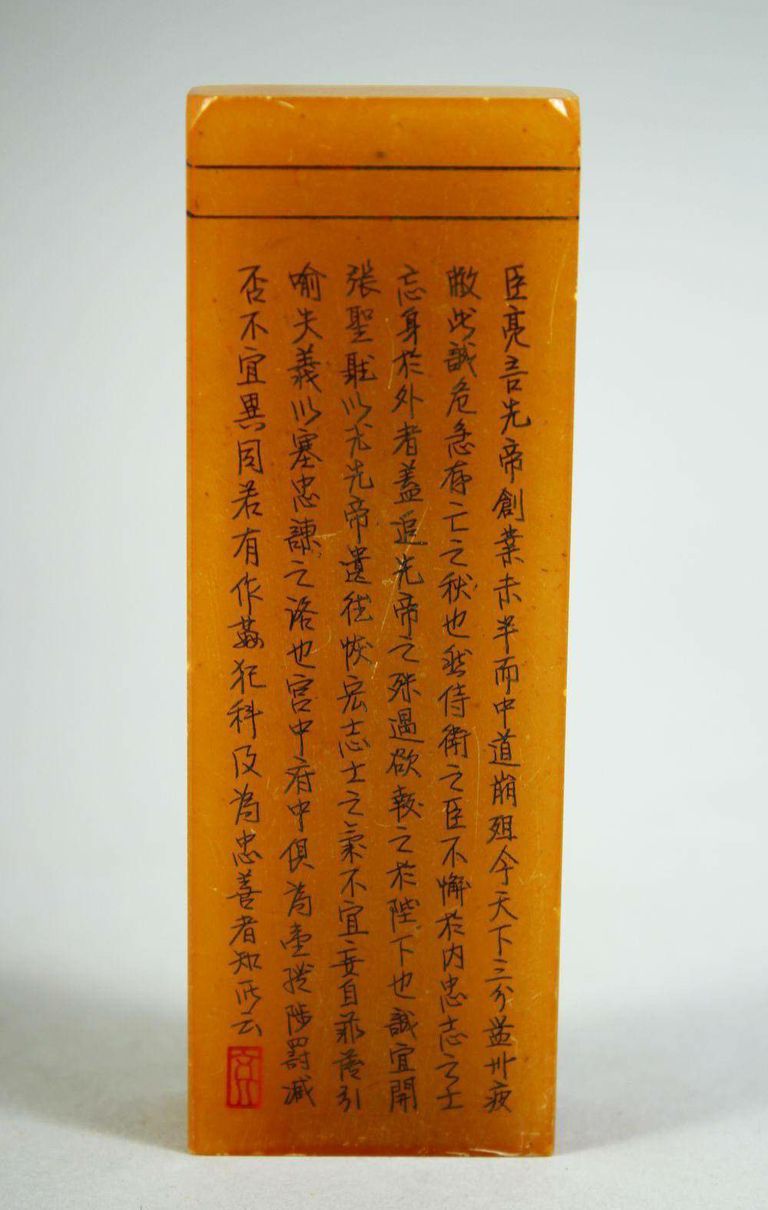 臣亮言先帝創業未半而中道崩殂今天下三分益州疲
敝此誠危急存亡之秋也然侍衛之臣不懈於內忠志之士
忘身於外者蓋追先帝之殊遇欲報之於陛下也誠宜開
張聖聽以光先帝遺德恢宏志士之氣不宜妄自菲薄引
喻失義以塞忠諫之路也宮中府中俱為壹體陟罰臧
否不宜異同若有作姦犯科及為忠善者知所云